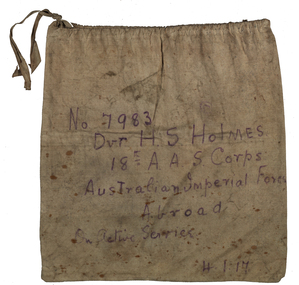 No 7983
Dvr H S Holmes
18th A A S Corps
Australian Imperial Force
Abroad
On Active Service
4.1.17